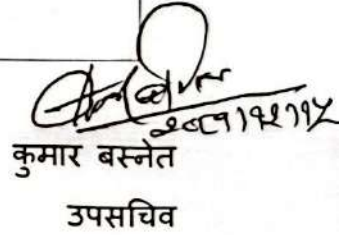 २०८१।१२।१५
कुमार बस्नेत
उपसचिव